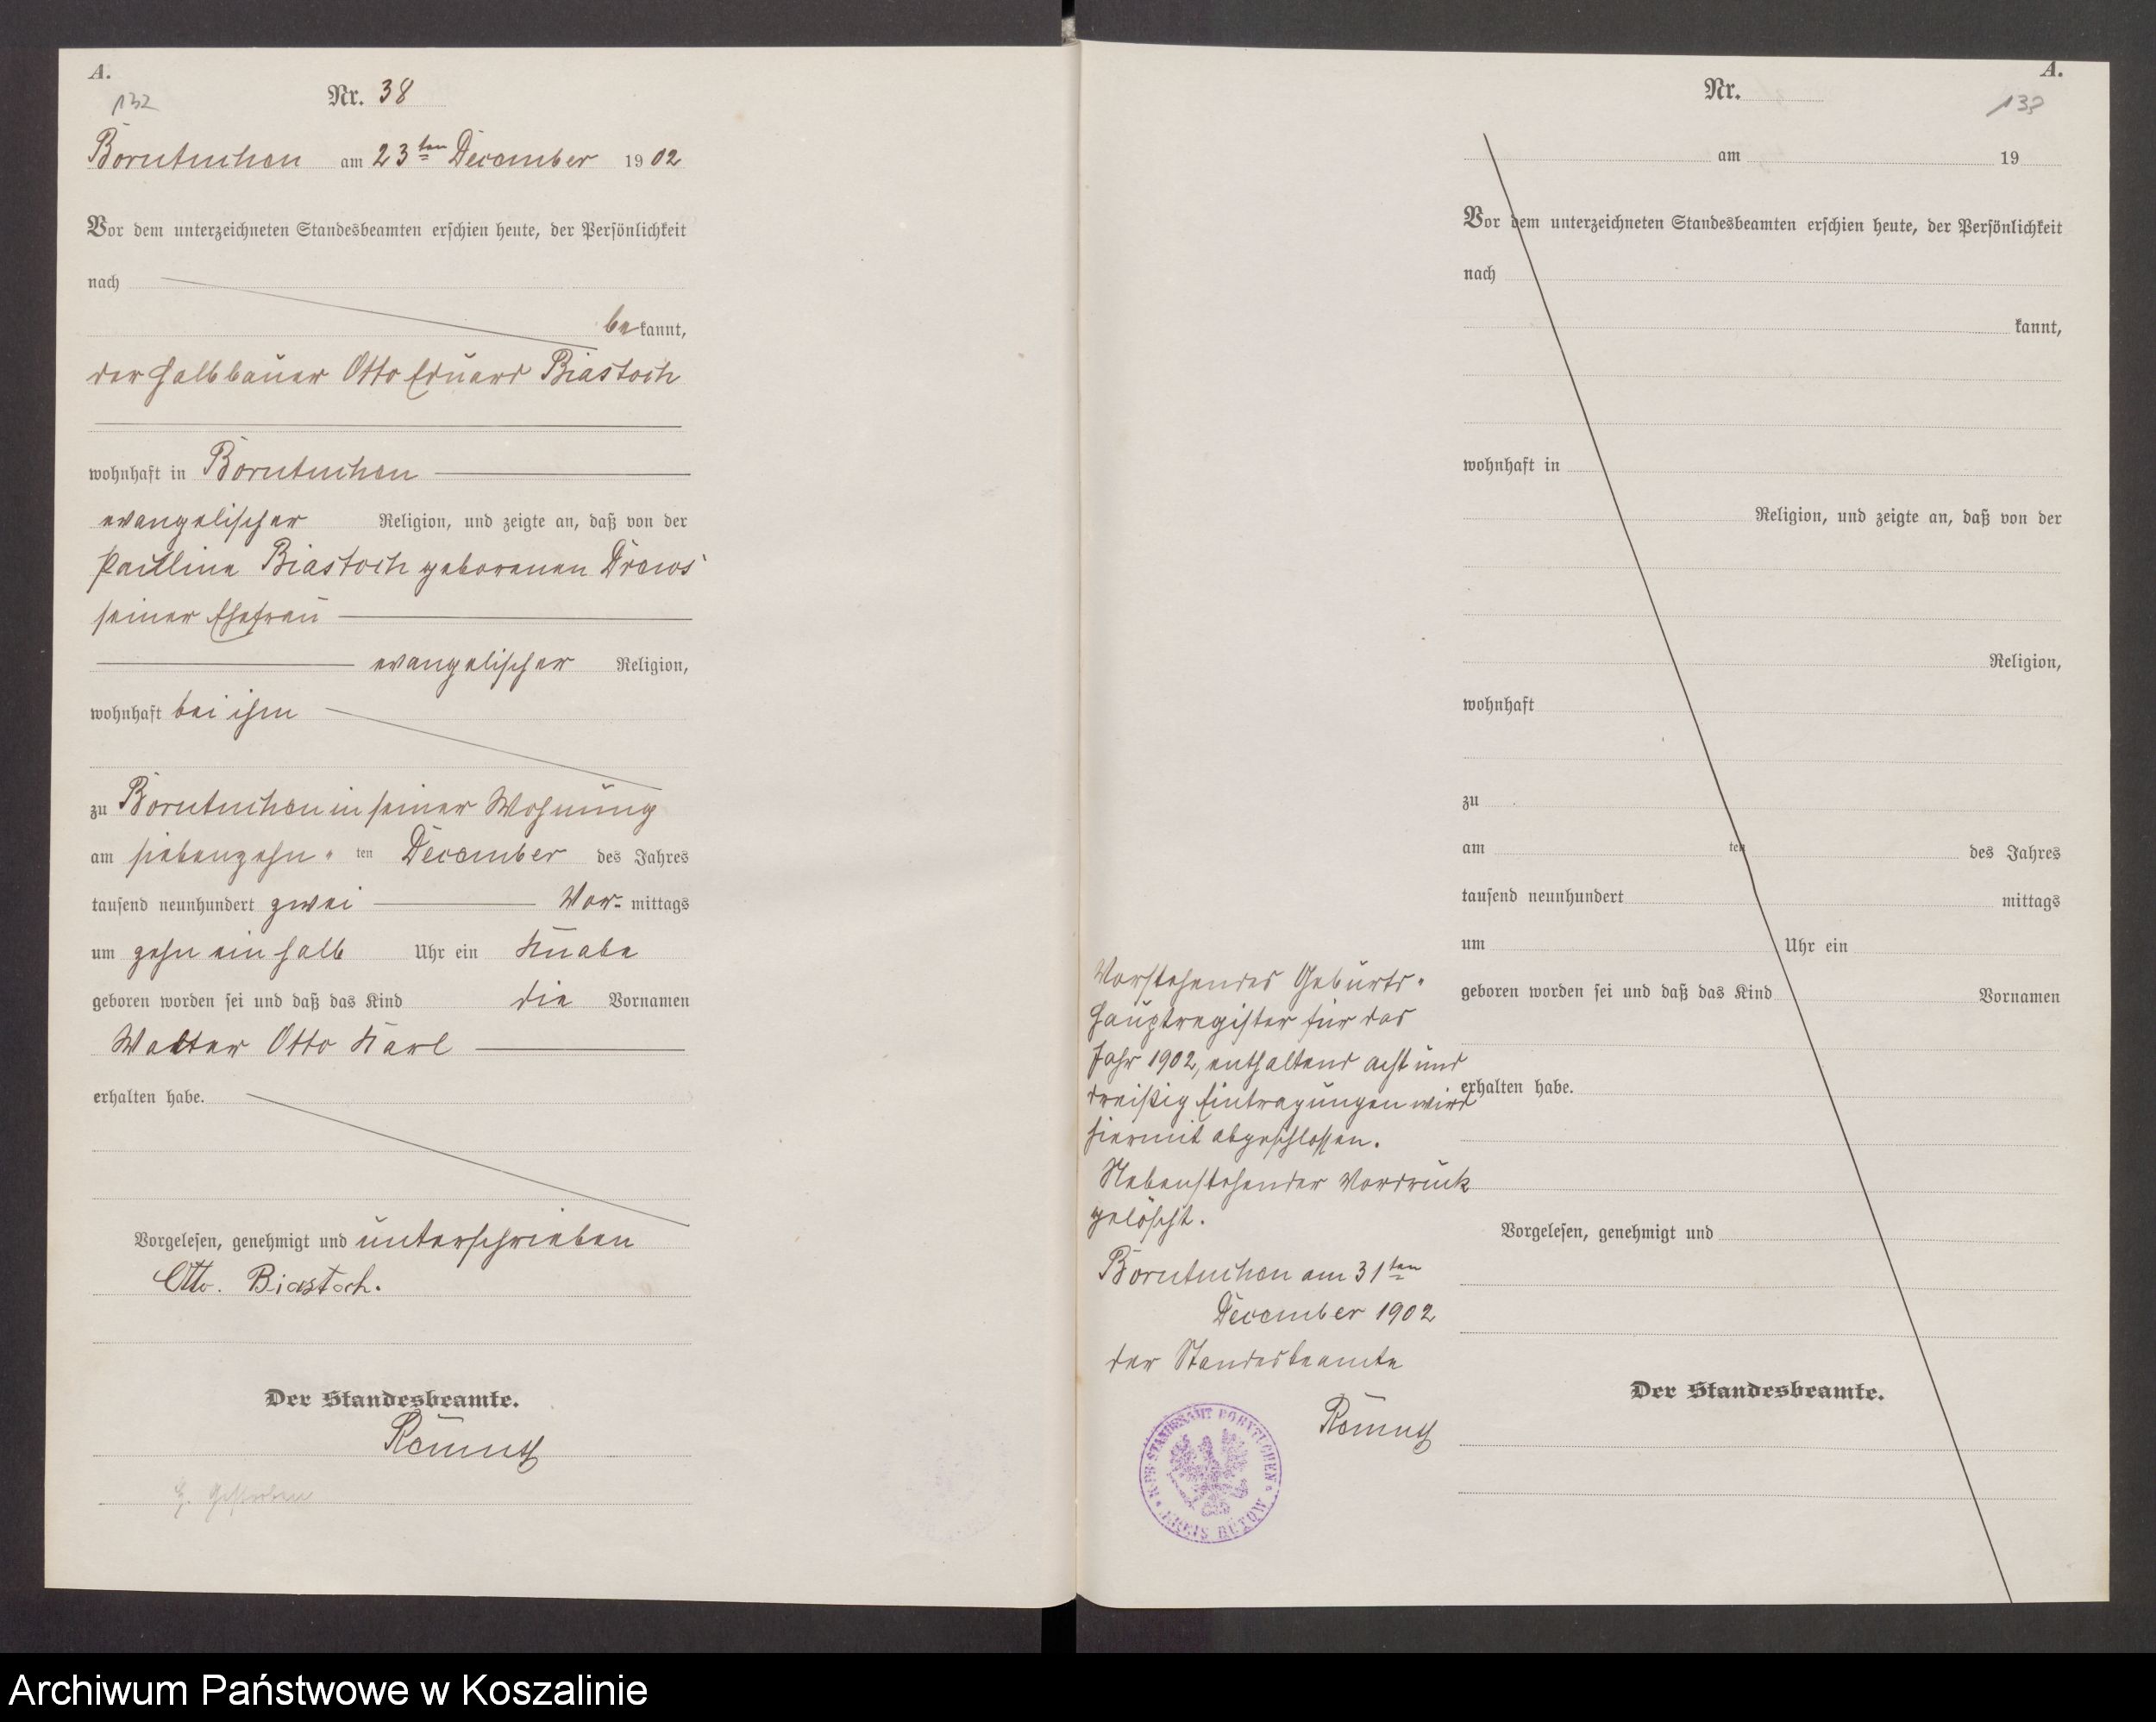 A.
132
Nr. 38
Borntuchen am 23ten December 1902
Vor dem unterzeichneten Standesbeamten erschien heute, der Persönlichkeit
nach
bekannt,
der Halbbauer Otto Eduard Biastoch
wohnhaft in Borntuchen
evangelischer Religion, und zeigte an, daß von der
Pauline Biastoch geborenen Drews
seiner Ehefrau
evangelischer Religion,
wohnhaft bei ihm
zu Borntuchen in seiner Wohnung
am siebenzehn ten December des Jahres
tausend neunhundert zwei Vor- mittags
um zehn ein halb Uhr ein Knabe
geboren worden sei und daß das Kind die Vornamen
Walter Otto Karl
erhalten habe.
Vorgelesen, genehmigt und unterschrieben
Otto. Biastoch.
Der Standesbeamte.
A.
Nr.
133
am 19
Vor dem unterzeichneten Standesbeamten erschien heute, der Persönlichkeit
nach
kannt,
wohnhaft in
Religion, und zeigte an, daß von der
Religion,
wohnhaft
zu
am ten des Jahres
tausend neunhundert mittags
um Uhr ein
geboren worden sei und daß das Kind Vornamen
erhalten habe.
Vorgelesen, genehmigt und
Der Standesbeamte.
Vorstehendes Geburts-
Hauptregister für das
Jahr 1902, enthaltend acht und
dreißig Eintragungen wird
hiermit abgeschlossen.
Nebenstehender Vordruck
gelöscht.
Borntuchen am 31ten
December 1902
der Standesbeamte
K. PR. STANDESAMT BORNTUCHEN
KREIS BÜTOW
Archiwum Państwowe w Koszalinie